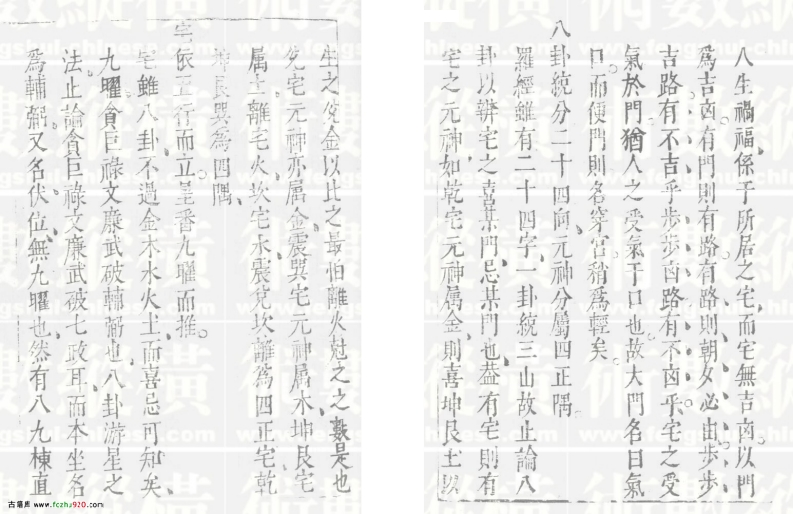 人生禍福係于所居之宅而宅無吉凶以門
爲吉凶有門則有路有路則朝夕必出步步
吉路有不吉乎步步凶路有不凶乎宅之受
氣於門猶人之受氣于口也故大門名曰氣
口而便門則名穿宮稍爲輕矣
八卦統分二十四向元神分屬四正隅
羅經雖有二十四字一卦統三山故止論八
卦以辨宅之喜某門忌某門也葢有宅則有
宅之元神如乾宅元神属金則喜坤艮土以
生之兌金以比之最怕離火尅之之數是也
兌宅元神亦属金震巽宅元神属木坤艮宅
属土離宅火坎宅水震兌坎離爲四正宅乾
坤艮巽爲四隅
宅依五行而立呈番九曜而推
宅雖八卦不過金木水火土而喜忌可知矣
九曜貪巨祿文廉武破輔弼也八卦游星之
法止論貪巨祿文廉武破七政耳而本坐名
爲輔弼又名伏位無九曜也然有八九棟直
古籍库 www.fczhu920.com